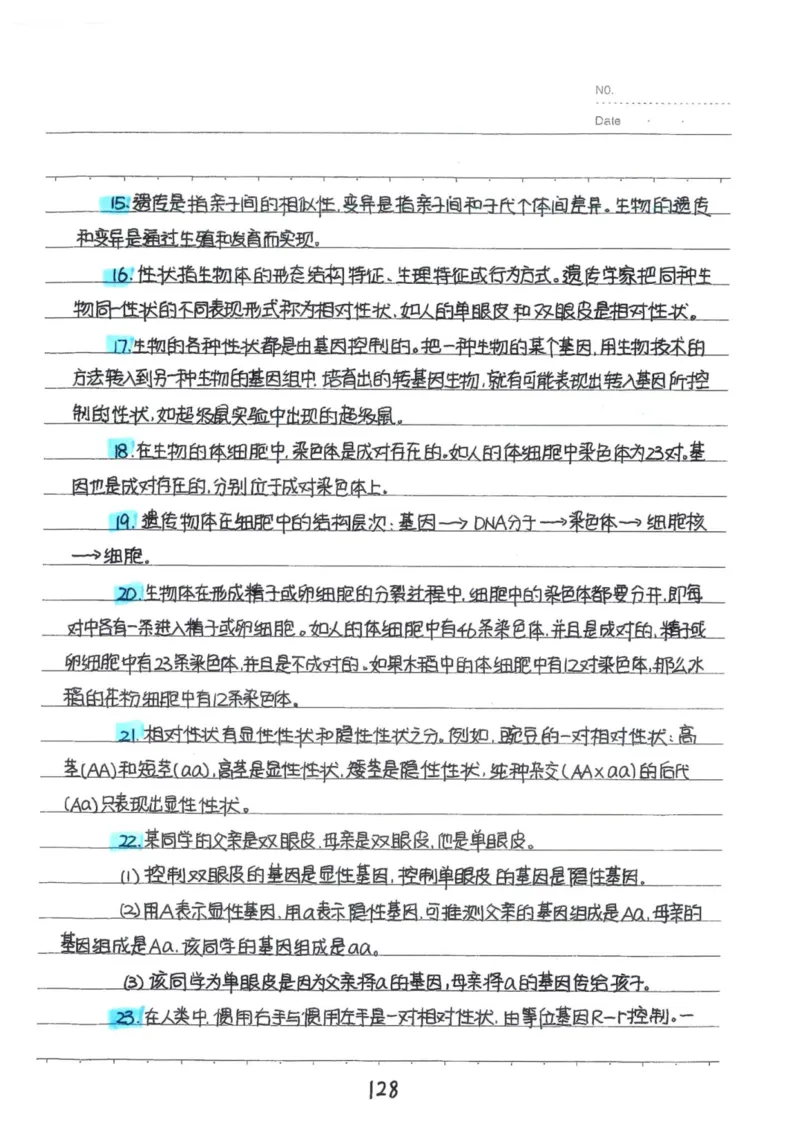 NO.
Date
15.遗传是指亲子间的相似性,变异是指亲子间和子代个体间差异。生物的遗传
和变异是通过生殖和发育而实现。
16.性状指生物体的形态结构特征、生理特征或行为方式。遗传学家把同种生
物同一性状的不同表现形式称为相对性状,如人的单眼皮和双眼皮是相对性状。
17.生物的各种性状都是由基因控制的。把一种生物的某个基因,用生物技术的
方法转入到另一种生物的基因组中,培育出的转基因生物,就有可能表现出转入基因所控
制的性状,如超级鼠实验中出现的超级鼠。
18.在生物的体细胞中,染色体是成对存在的。如人的体细胞中染色体为23对。基
因也是成对存在的,分别位于成对染色体上。
19.遗传物体在细胞中的结构层次:基因→DNA分子→染色体→细胞核
→细胞。
20.生物体在形成精子或卵细胞的分裂过程中,细胞中的染色体都要分开,即每
对中各有一条进入精子或卵细胞。如人的体细胞中有46条染色体,并且是成对的,精子或
卵细胞中有23条染色体,并且是不成对的。如果水稻中的体细胞中有12对染色体,那么水
稻的花粉细胞中有12条染色体。
21.相对性状有显性性状和隐性性状之分。例如,豌豆的一对相对性状:高
茎(AA)和短茎(aa),高茎是显性性状,矮茎是隐性性状,纯种杂交(AA×aa)的后代
(Aa)只表现出显性性状。
22.某同学的父亲是双眼皮,母亲是双眼皮,他是单眼皮。
(1)控制双眼皮的基因是显性基因,控制单眼皮的基因是隐性基因。
(2)用A表示显性基因,用a表示隐性基因,可推测父亲的基因组成是Aa,母亲的
基因组成是Aa,该同学的基因组成是aa。
(3)该同学为单眼皮是因为父亲将a的基因,母亲将a的基因传给孩子。
23.在人类中,惯用右手与惯用左手是一对相对性状,由等位基因R-r控制。一
128